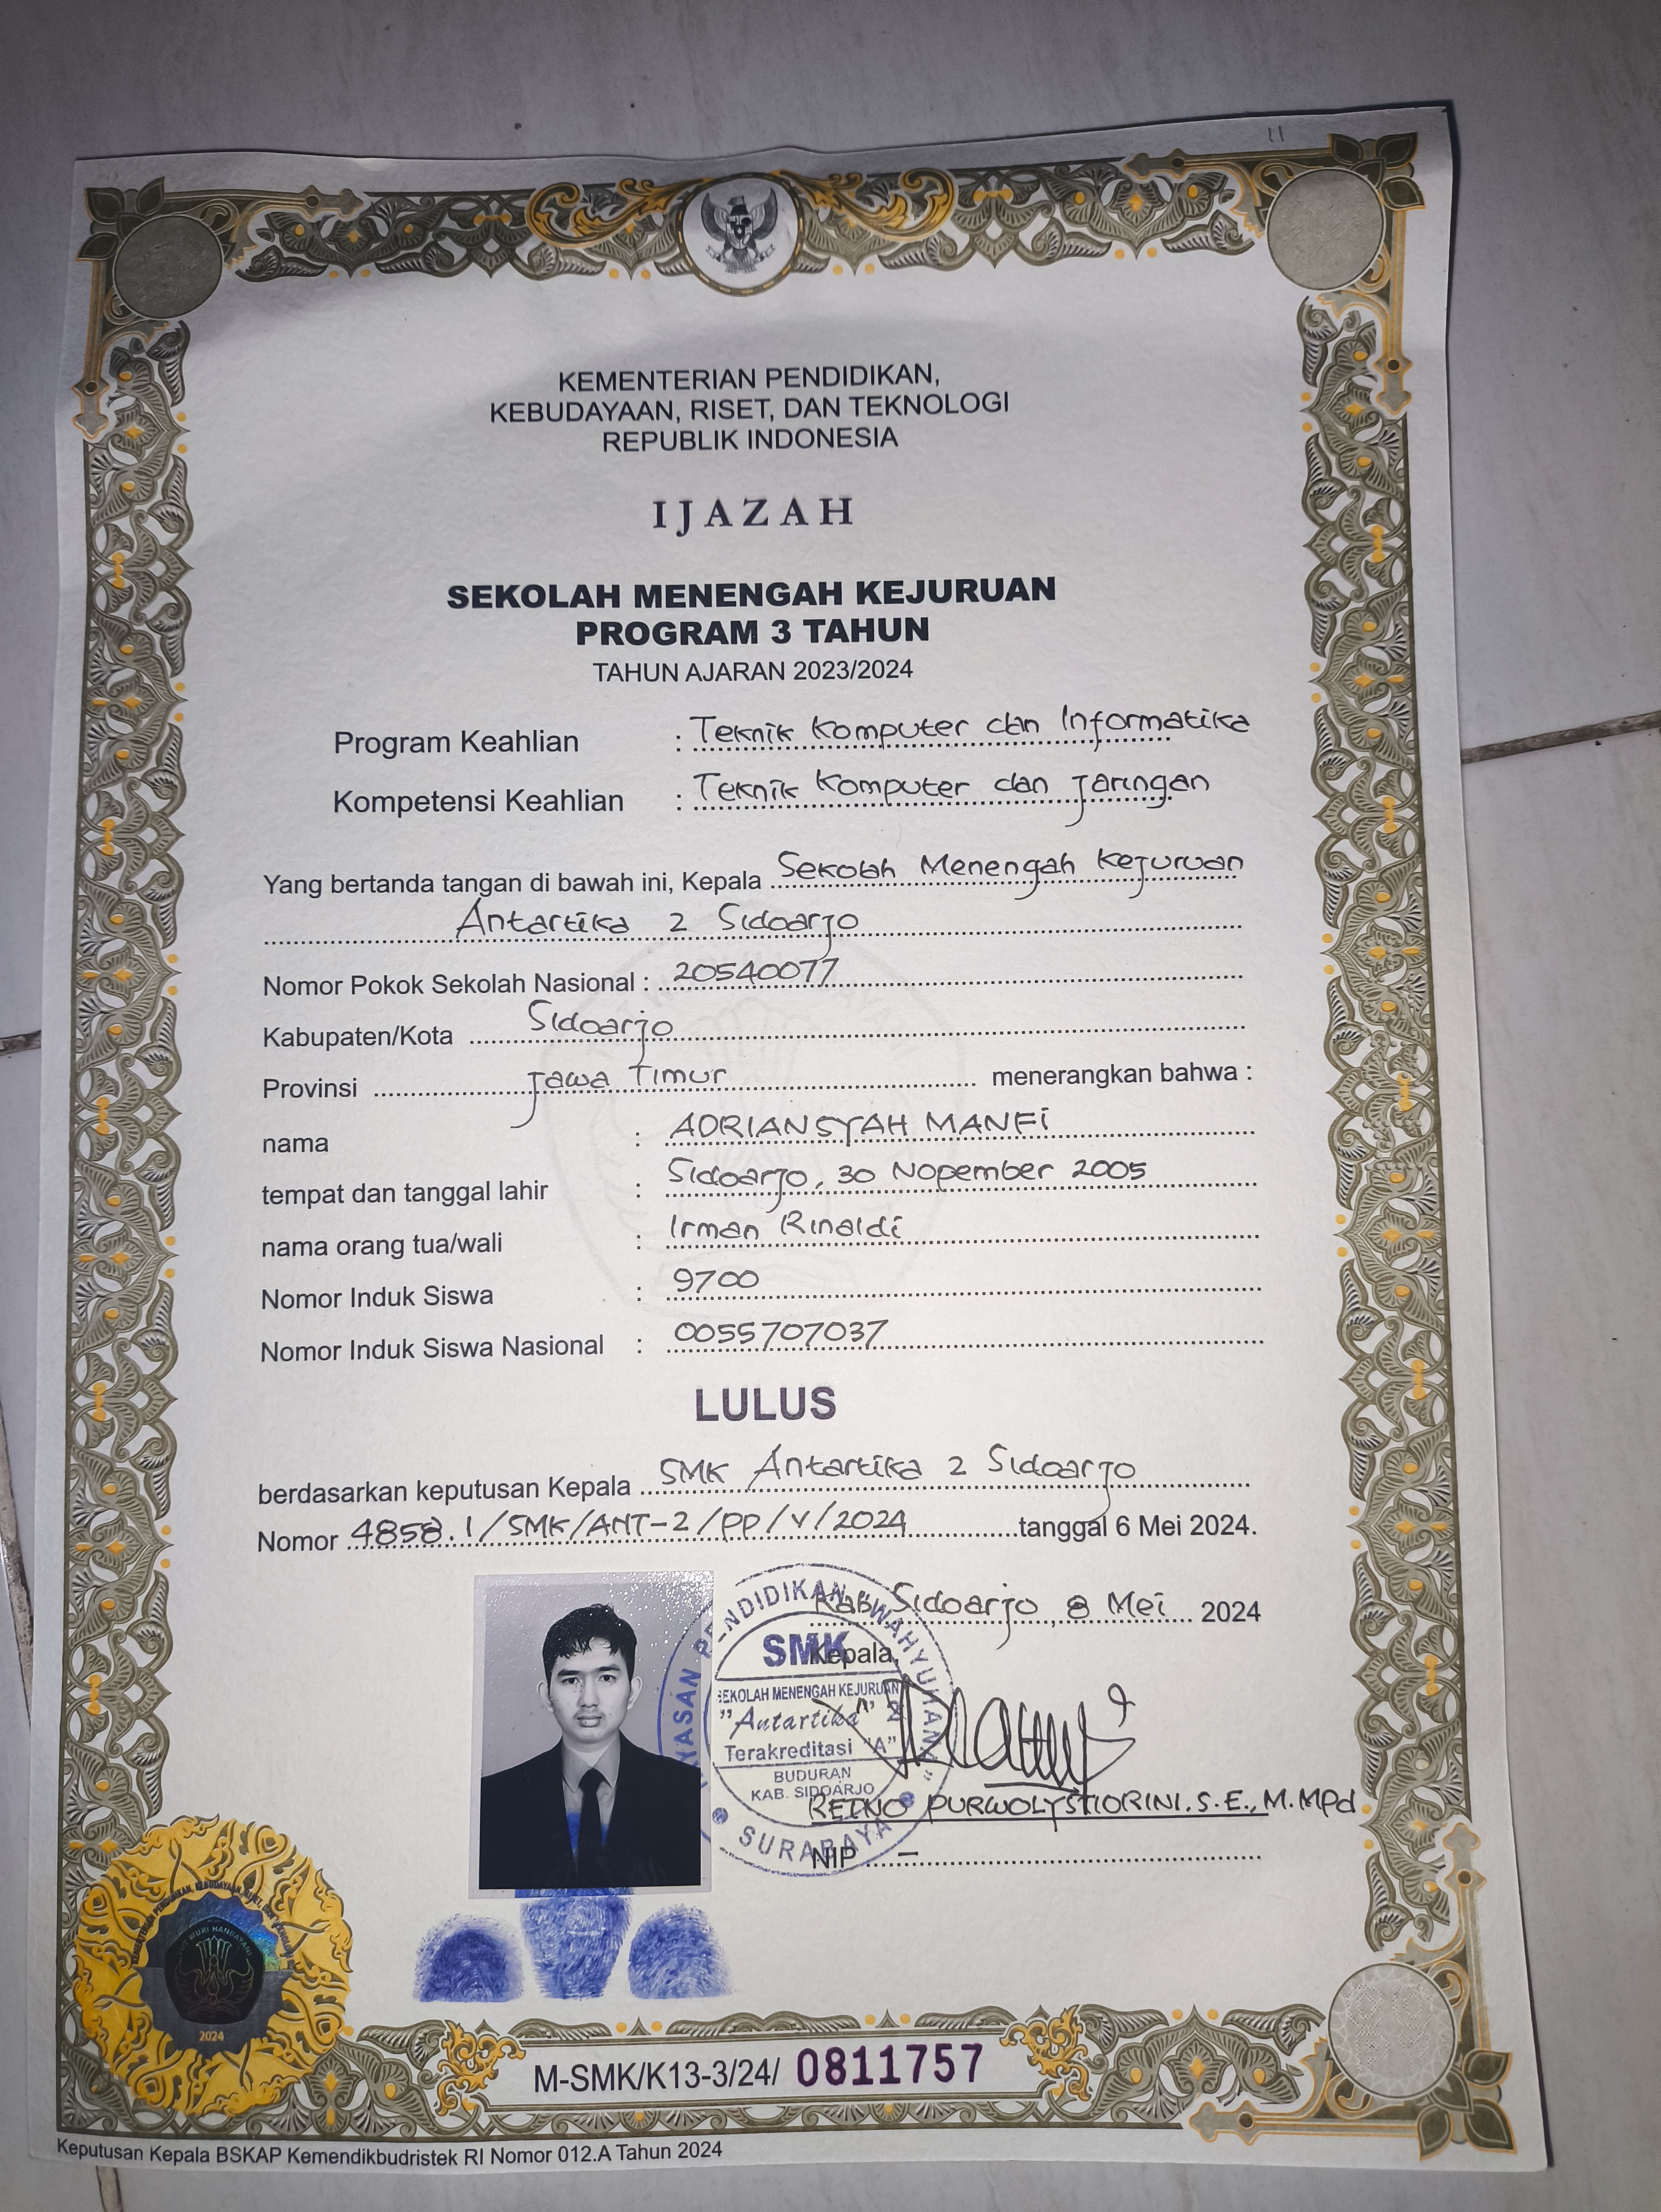 11
KEMENTERIAN PENDIDIKAN,
KEBUDAYAAN, RISET, DAN TEKNOLOGI
REPUBLIK INDONESIA
IJAZAH
SEKOLAH MENENGAH KEJURUAN
PROGRAM 3 TAHUN
TAHUN AJARAN 2023/2024
Program Keahlian : Teknik Komputer dan Informatika
Kompetensi Keahlian : Teknik Komputer dan Jaringan
Yang bertanda tangan di bawah ini, Kepala Sekolah Menengah Kejuruan
Antartika 2 Sidoarjo
Nomor Pokok Sekolah Nasional : 20540077
Kabupaten/Kota Sidoarjo
Provinsi Jawa Timur menerangkan bahwa :
nama : ADRIANSYAH MANFi
tempat dan tanggal lahir : Sidoarjo, 30 Nopember 2005
nama orang tua/wali : Irman Rinaldi
Nomor Induk Siswa : 9700
Nomor Induk Siswa Nasional : 0055707037
LULUS
berdasarkan keputusan Kepala SMK Antartika 2 Sidoarjo
Nomor 4858.1/SMK/ANT-2/PP/V/2024 tanggal 6 Mei 2024.
Kab. Sidoarjo, 8 Mei 2024
Kepala,
YAYASAN PENDIDIKAN "WAHYUHANA"
SMK
SEKOLAH MENENGAH KEJURUAN
"Antartika" 2
Terakreditasi "A"
BUDURAN
KAB. SIDOARJO
SURABAYA
RETNO PURWOLYSTIORINI.S.E., M.MPd
NIP –
TUT WURI HANDAYANI
2024
M-SMK/K13-3/24/ 0811757
Keputusan Kepala BSKAP Kemendikbudristek RI Nomor 012.A Tahun 2024